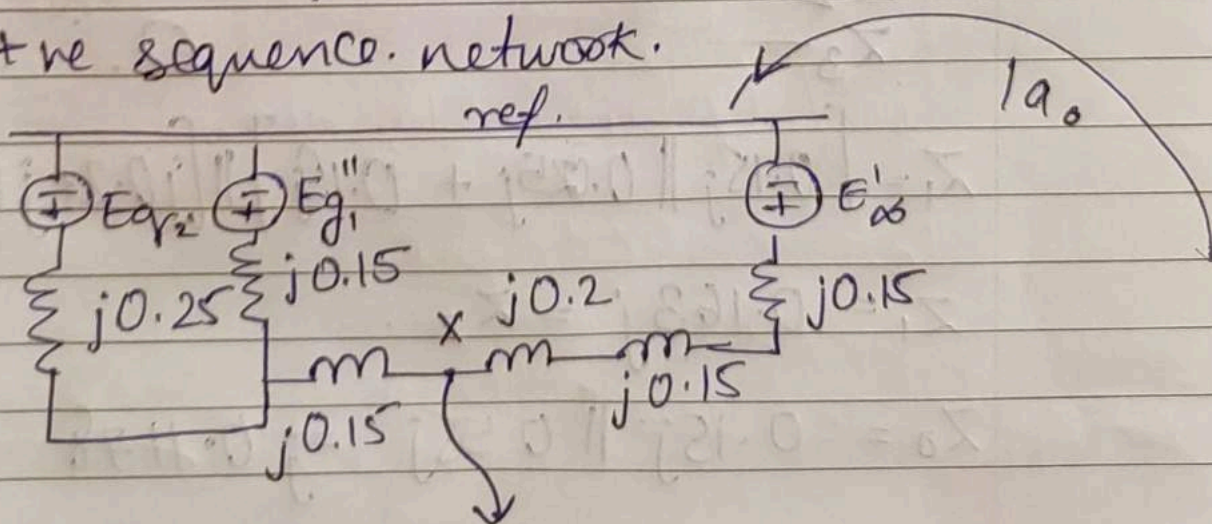 +ve sequence. netwook.
ref.
Ia₀
Eg₂ Eg₁" E'∞
j0.25 j0.15 j0.15
x j0.2
j0.15 j0.15